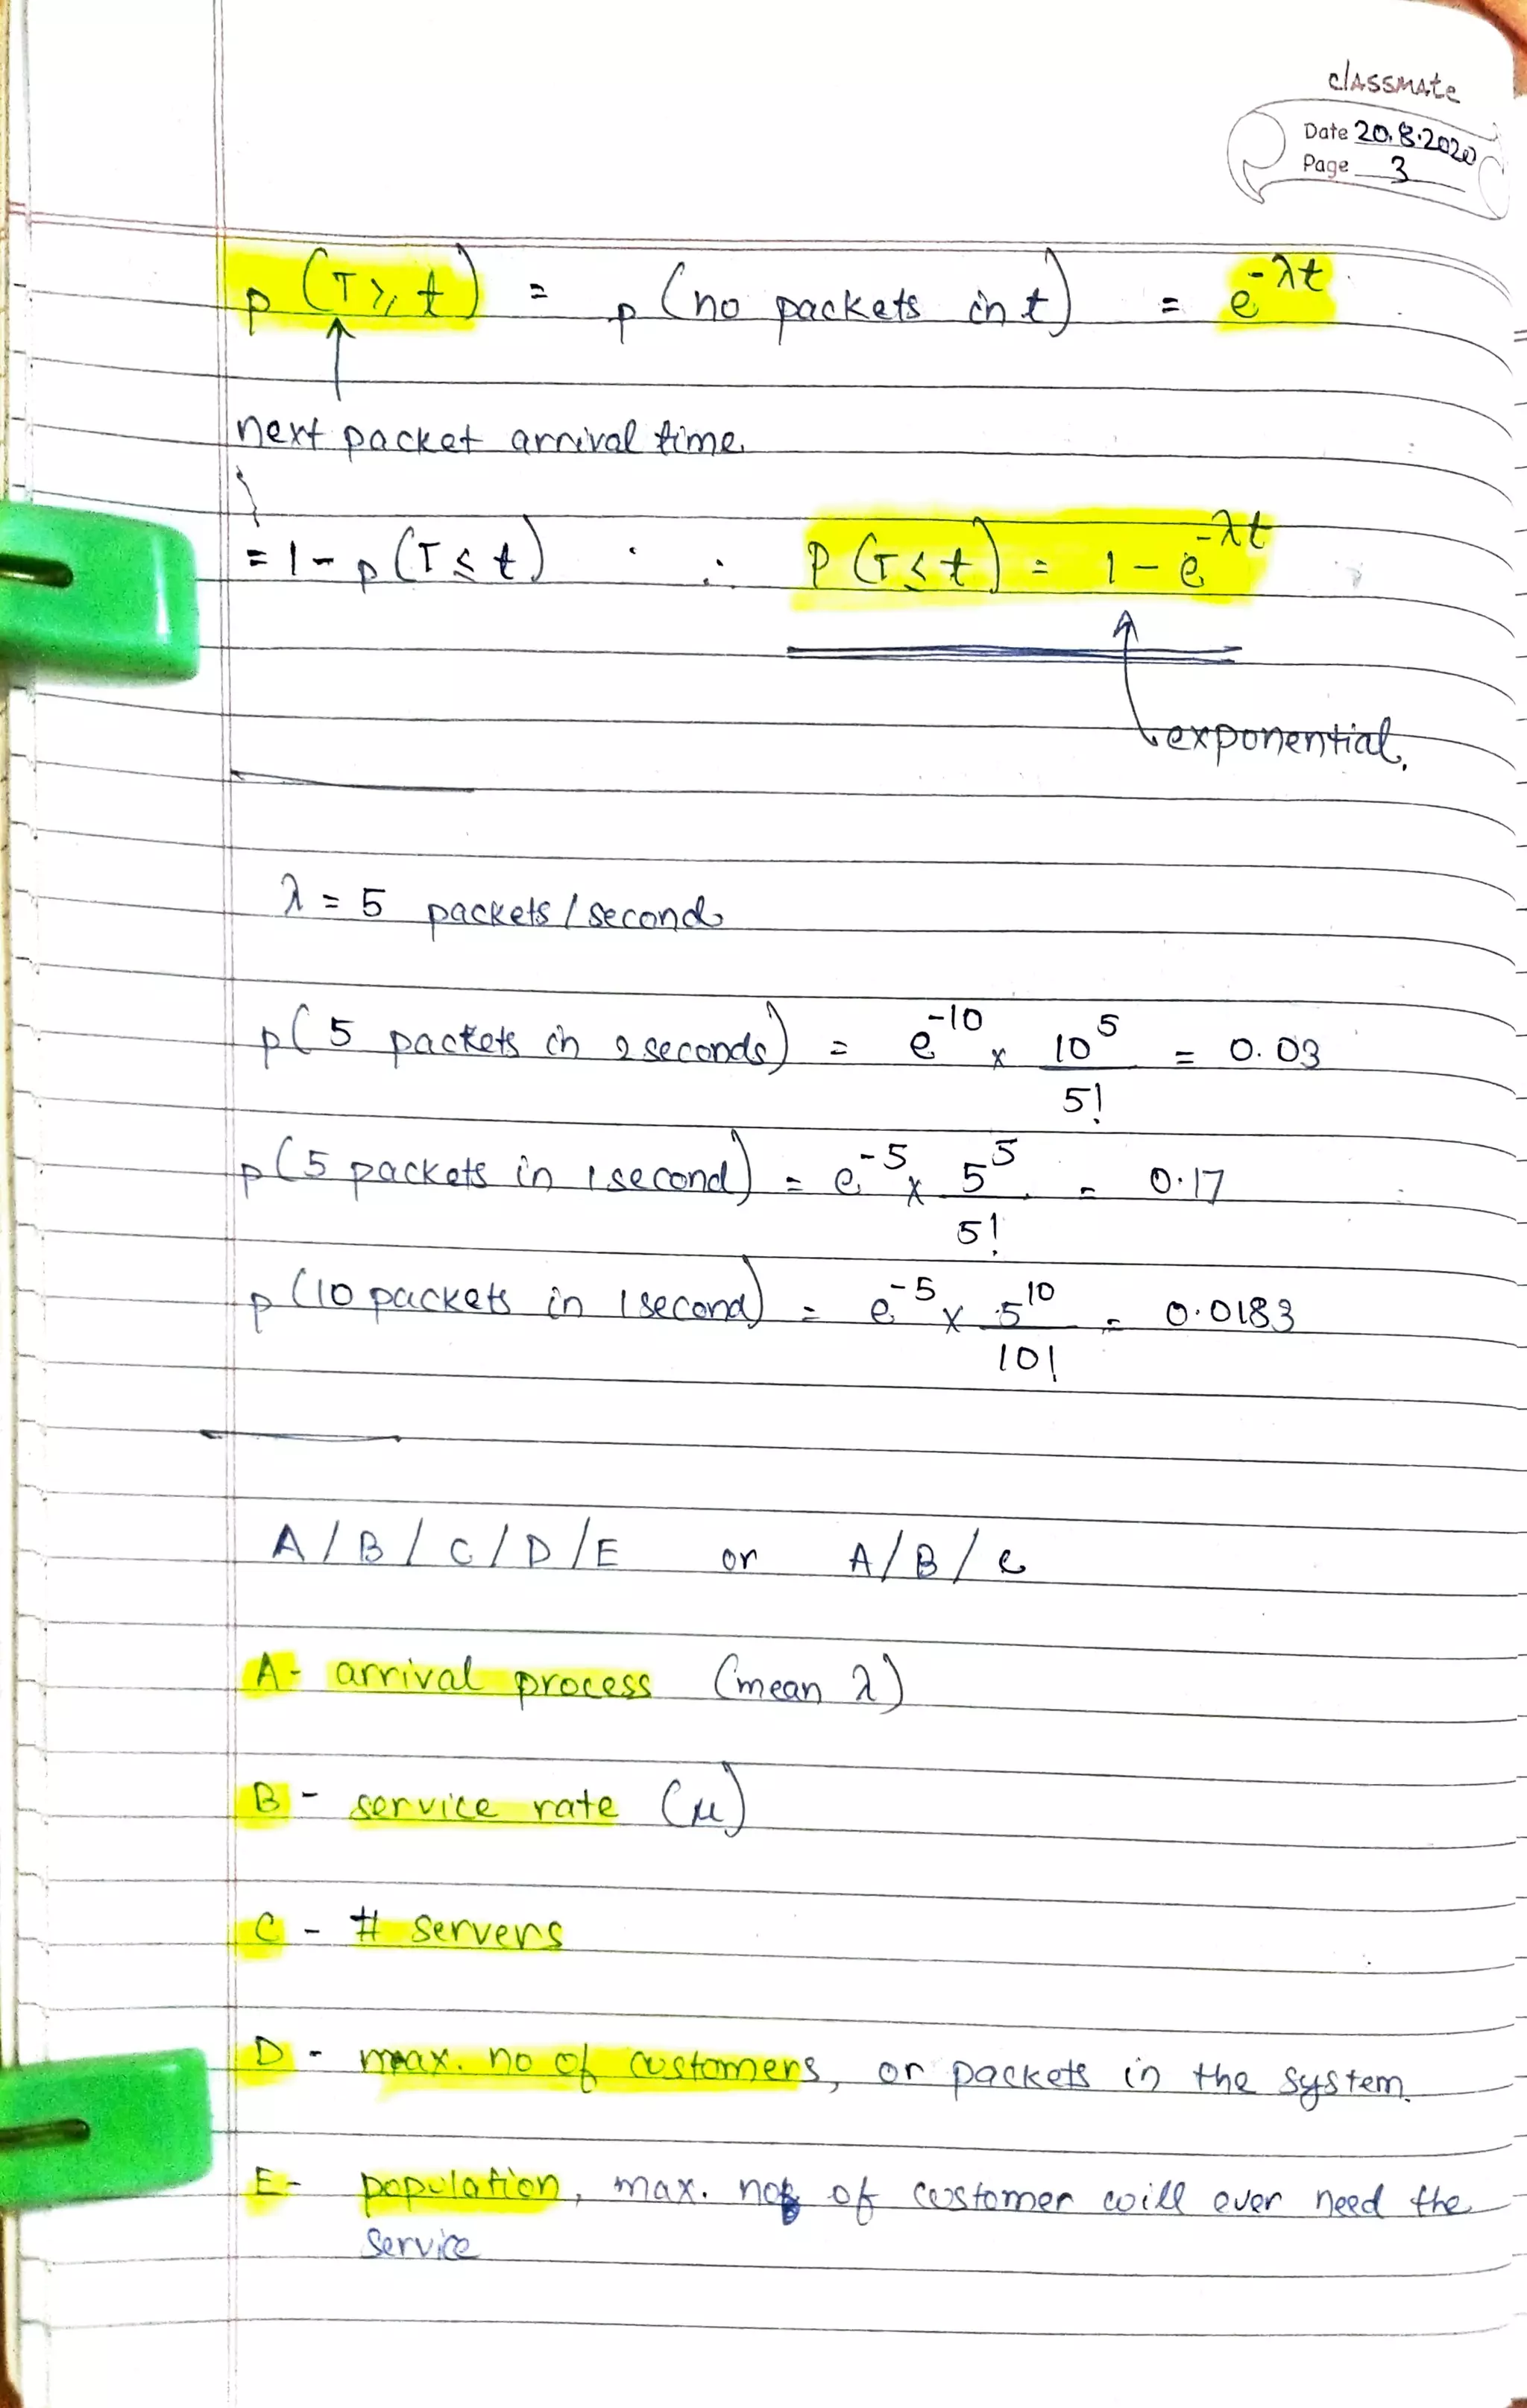 classmate
Date 20.8.2020
Page 3
p (T ≥ t) = p (no packets in t) = e^{-λt}
next packet arrival time.
= 1 - p (T ≤ t) ∴ P (T ≤ t) = 1 - e^{-λt}
exponential.
λ = 5 packets / second
p( 5 packets in 2 seconds) = e^{-10} x 10^5 / 5! = 0.03
p(5 packets in 1 second) = e^{-5} x 5^5 / 5! = 0.17
p (10 packets in 1 second) = e^{-5} x 5^{10} / 10! = 0.0183
A / B / C / D / E or A / B / C
A- arrival process (mean λ)
B - service rate (μ)
C - # servers
D - max. no of customers, or packets in the system.
E- population, max. no of customer will ever need the
service